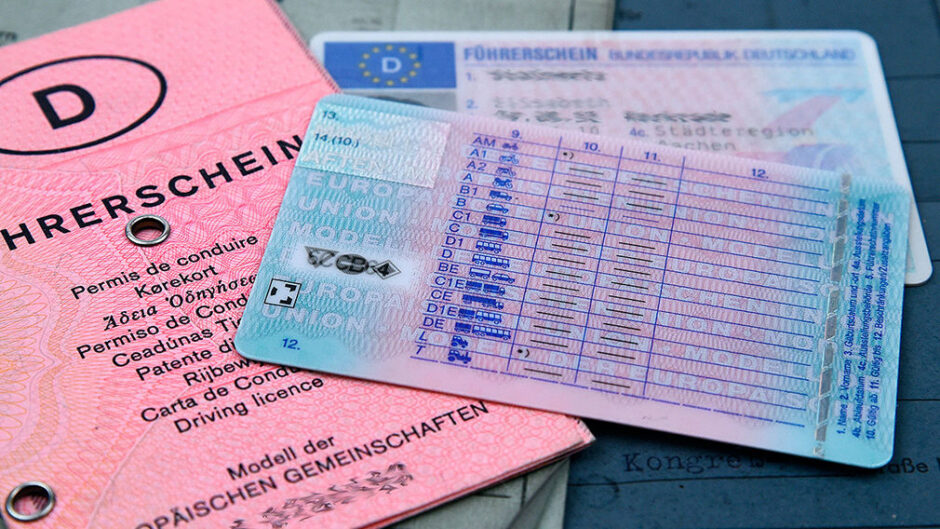 D
HRERSCHEIN
Permis de conduire
Kørekort
Ἄδεια Ὁδηγήσεω
Permiso de Condu
Ceadúnas Tio
Patente di
Rijbewi
Carta de Condu
Driving licence
Modell der
OPÄISCHEN GEMEINSCHAFTEN
D
FÜHRERSCHEIN BUNDESREPUBLIK DEUTSCHLAND
1.
2.
Elisabeth
10 4c. Städteregion
Aachen
13.
14.(10.)
EURO
UNION
MODE
EUROPA
UNION
12.
9. 10. 11. 12.
AM
A1
A2
A
B1
B
C1
C
D1
D
BE
C1E
CE
D1E
DE
L
T
1. Name 2. Vorname 3. Geburtsdatum und -ort 4a. Ausstellungsdatum
4b. Ablaufdatum 4c. Ausstellungsbehörde 5. Führerscheinnummer
10. Gültig ab 11. Gültig bis 12. Beschränkungen/Zusatzangaben
Kongreß